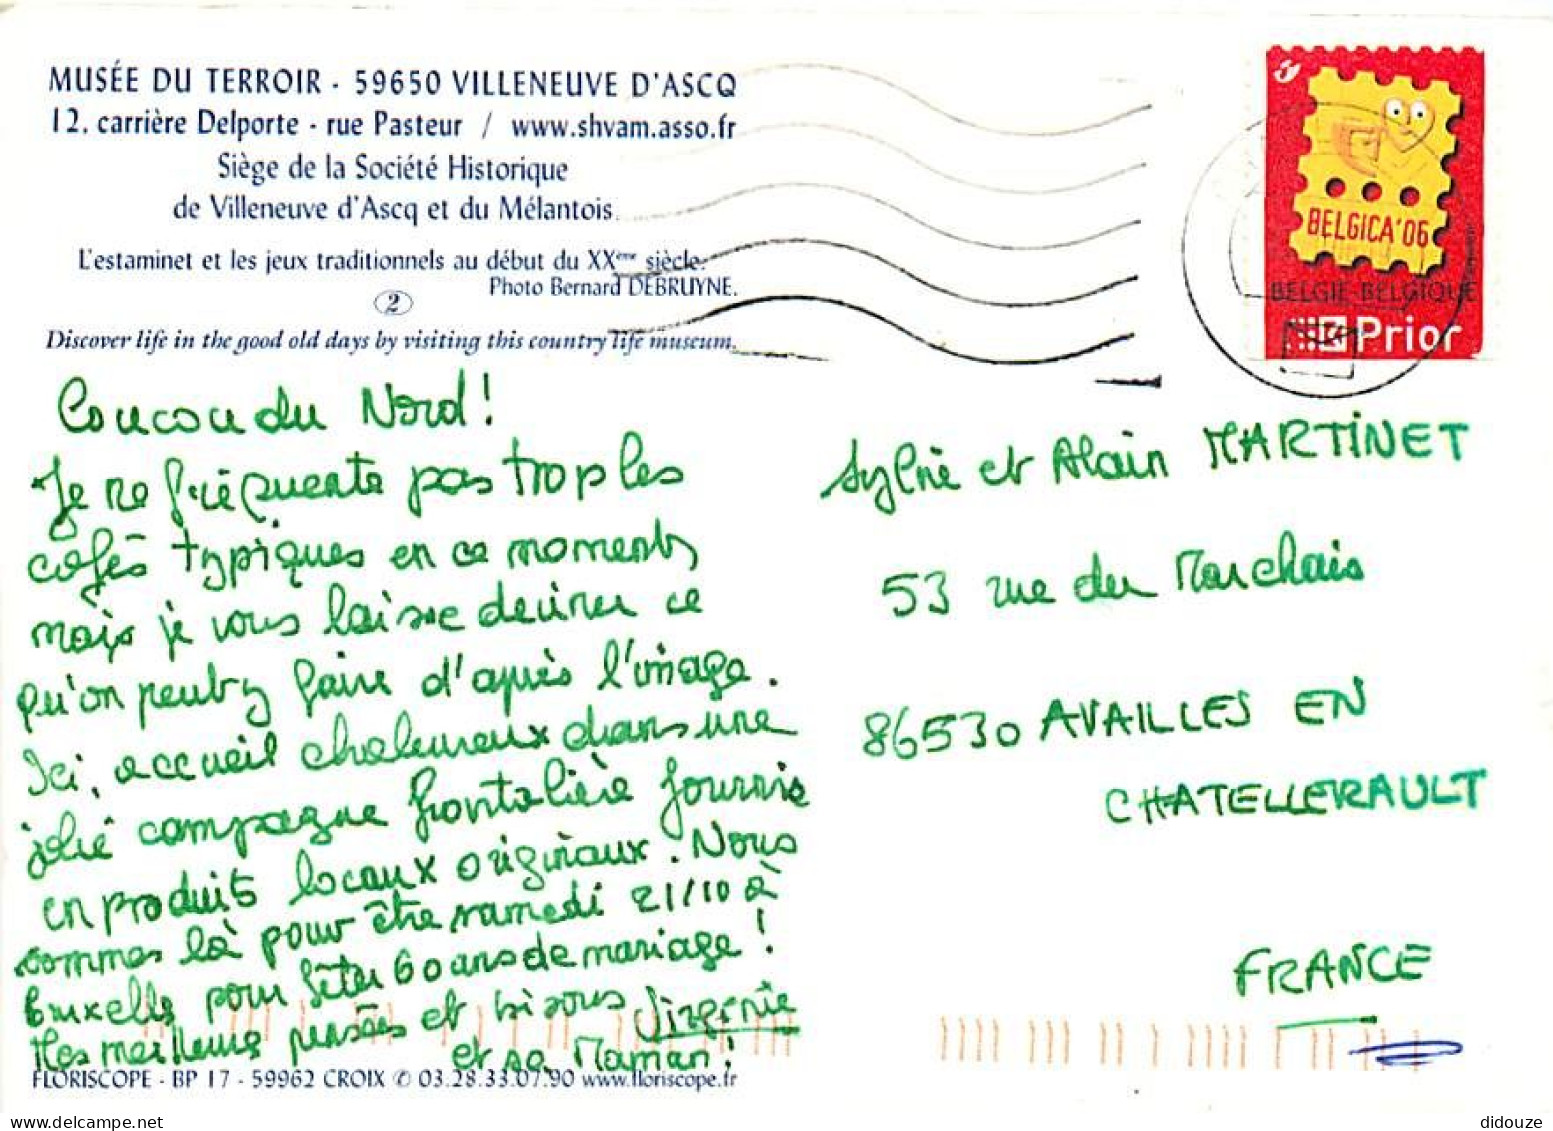 MUSÉE DU TERROIR - 59650 VILLENEUVE D'ASCQ
12, carrière Delporte - rue Pasteur / www.shvam.asso.fr
Siège de la Société Historique
de Villeneuve d'Ascq et du Mélantois.
L'estaminet et les jeux traditionnels au début du XXème siècle.
Photo Bernard DEBRUYNE.
2
Discover life in the good old days by visiting this country life museum.
BELGICA'06
BELGIE-BELGIQUE
Prior
Coucou du Nord !
Je ne fréquente pas trop les
cafés typiques en ce moments
mais je vous laisse deviner ce
qu'on peut y faire d'après l'image.
Ici, accueil chaleureux dans une
jolie campagne frontalière fournie
en produits locaux originaux. Nous
sommes là pour être samedi 21/10 à
Bruxelles pour fêter 60 ans de mariage !
Mes meilleures pensées et bisous Virginie
et sa Maman !
Sylvie et Alain MARTINET
53 rue du Marchais
86530 AVAILLES EN
CHATELLERAULT
FRANCE
FLORISCOPE - BP 17 - 59962 CROIX ✆ 03.28.33.07.90 www.floriscope.fr
didouze